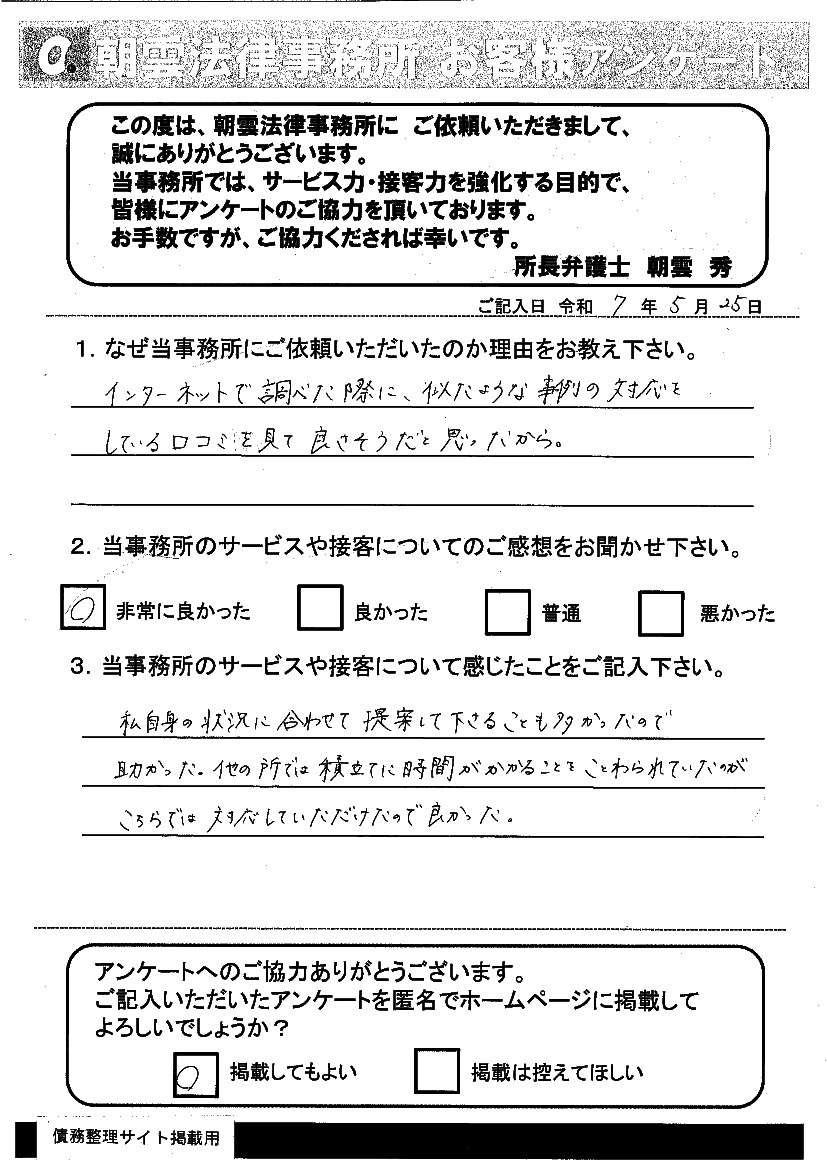 Q. 朝雲法律事務所 お客様アンケート
この度は、朝雲法律事務所に ご依頼いただきまして、
誠にありがとうございます。
当事務所では、サービス力・接客力を強化する目的で、
皆様にアンケートのご協力を頂いております。
お手数ですが、ご協力くだされば幸いです。
所長弁護士 朝雲 秀
ご記入日 令和 7 年 5 月 25 日
1. なぜ当事務所にご依頼いただいたのか理由をお教え下さい。
インターネットで調べた際に、似たような事例の対応を
している口コミを見て良さそうだと思ったから。
2. 当事務所のサービスや接客についてのご感想をお聞かせ下さい。
○ 非常に良かった 良かった 普通 悪かった
3. 当事務所のサービスや接客について感じたことをご記入下さい。
私自身の状況に合わせて提案して下さることも多かったので
助かった。他の所では積立てに時間がかかることをことわられていたのが
こちらでは対応していただけたので良かった。
アンケートへのご協力ありがとうございます。
ご記入いただいたアンケートを匿名でホームページに掲載して
よろしいでしょうか?
○ 掲載してもよい 掲載は控えてほしい
債務整理サイト掲載用